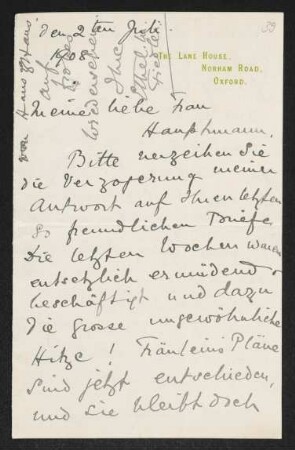 den 2ten Juli
1908.
THE LANE HOUSE,
NORHAM ROAD,
OXFORD.
39
Meine liebe Frau
Hauptmann,
Bitte verzeihen Sie
die Verzogerung meiner
Antwort auf Ihren letzten
so freundlichen Briefe
Die letzten Wochen waren
entsetzlich ermüdend &
beschäftigt und dazu
die grosse ungewöhnliche
Hitze! Fräuleins Pläne
sind jetzt entschieden,
und sie bleibt doch
auf
Wiedersehen
Ihre